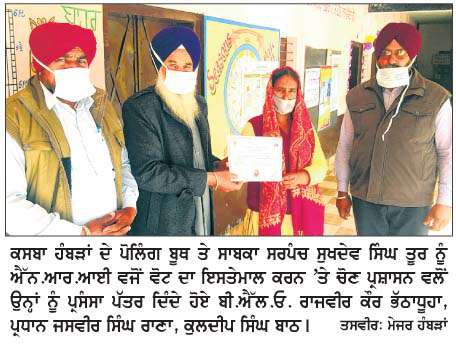 ਕਸਬਾ ਹੰਬੜਾਂ ਦੇ ਪੋਲਿੰਗ ਬੂਥ ਤੇ ਸਾਬਕਾ ਸਰਪੰਚ ਸੁਖਦੇਵ ਸਿੰਘ ਤੂਰ ਨੂੰ
ਐੱਨ.ਆਰ.ਆਈ ਵਜੋਂ ਵੋਟ ਦਾ ਇਸਤੇਮਾਲ ਕਰਨ 'ਤੇ ਚੋਣ ਪ੍ਰਸ਼ਾਸਨ ਵਲੋਂ
ਉਨ੍ਹਾਂ ਨੂੰ ਪ੍ਰਸੰਸਾ ਪੱਤਰ ਦਿੰਦੇ ਹੋਏ ਬੀ.ਐੱਲ.ਓ. ਰਾਜਵੀਰ ਕੌਰ ਭੱਠਾਧੂਹਾ,
ਪ੍ਰਧਾਨ ਜਸਵੀਰ ਸਿੰਘ ਰਾਣਾ, ਕੁਲਦੀਪ ਸਿੰਘ ਬਾਠ। ਤਸਵੀਰ: ਮੇਜਰ ਹੰਬੜਾਂ